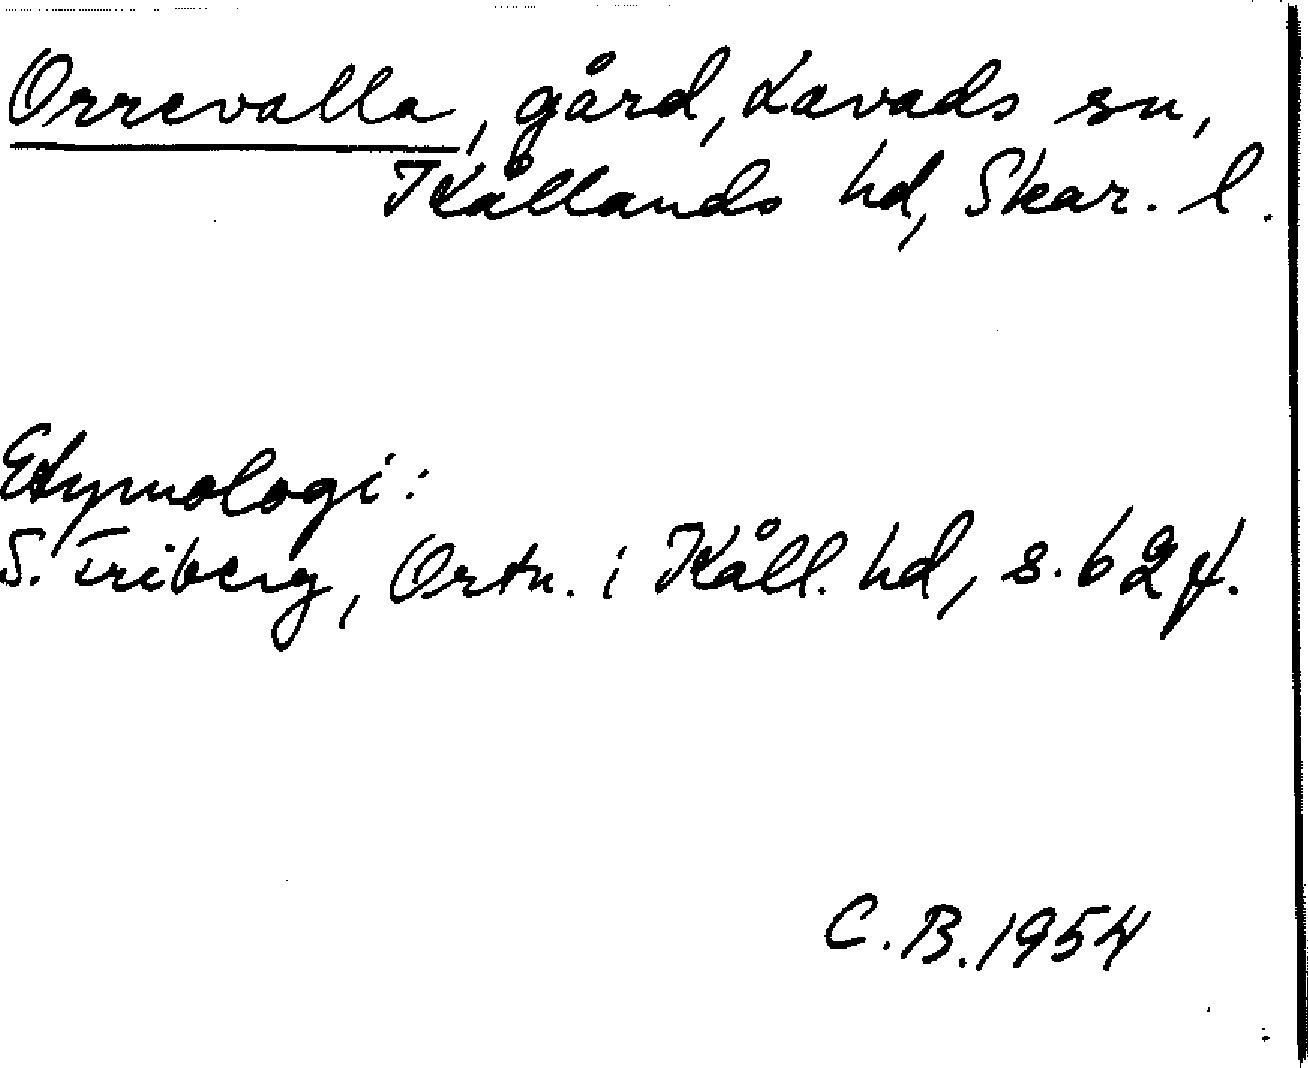 Orrevalla, gård, Lavads sn,
Kållands hd, Skar. l.
Etymologi:
S. Friberg, Ortn. i Kåll. hd, s. 62 f.
C.B. 1954